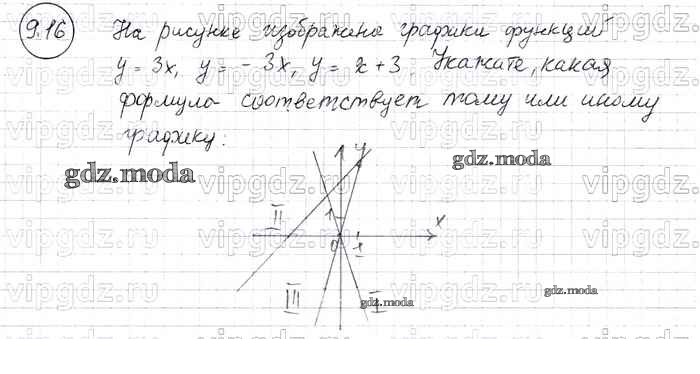 9.16 На рисунке изображены графики функций
y = 3x, y = - 3x, y = x + 3. Укажите, какая
формула соответствует тому или иному
графику:
gdz.moda
gdz.moda
y
1
x
II
0
1
III
I
gdz.moda
gdz.moda
vipgdz.ru